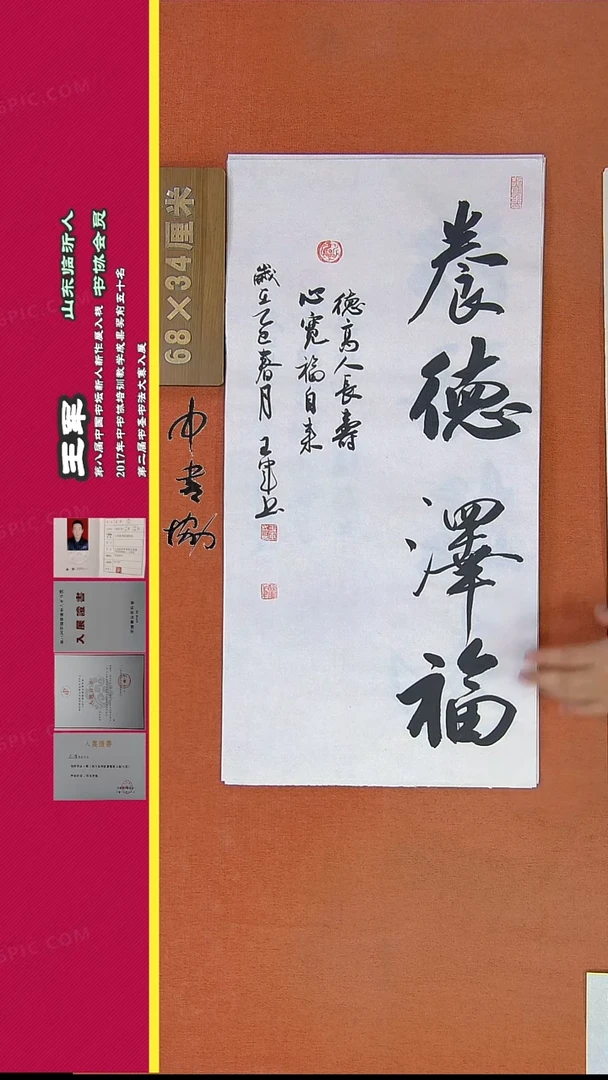 養德澤福
德高人長壽
心寬福自来
歲在乙巳春月 王軍书
68×34厘米
中書協
王军
山东临沂人
书协会员
第八届中国书坛新人新作展入展
2017年中书协培训教学成果奖前五十名
第二届书圣书法大赛入展
入展證書